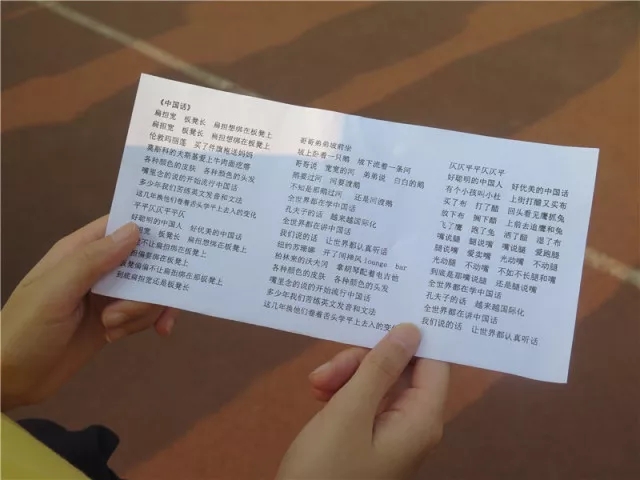 《中国话》
扁担宽 板凳长 扁担想绑在板凳上
扁担宽 板凳长 扁担想绑在板凳上
伦敦玛丽莲 买了件旗袍送妈妈
莫斯科的夫斯基爱上牛肉面疙瘩
各种颜色的皮肤 各种颜色的头发
嘴里念的说的开始流行中国话
多少年我们苦练英文发音和文法
这几年换他们卷着舌头学平上去入的变化
平平仄仄平平仄
好聪明的中国人 好优美的中国话
担宽 板凳长 扁担想绑在板凳上
不让扁担绑在板凳上
担偏要绑在板凳上
板凳偏偏不让扁担绑在那板凳上
到底扁担宽还是板凳长
哥哥弟弟坡前坐
坡上卧着一只鹅 坡下流着一条河
哥哥说 宽宽的河 弟弟说 白白的鹅
鹅要过河 河要渡鹅
不知是那鹅过河 还是河渡鹅
全世界都在学中国话
孔夫子的话 越来越国际化
全世界都在讲中国话
我们说的话 让世界都认真听话
纽约苏珊娜 开了间禅风 lounge bar
柏林来的沃夫冈 拿胡琴配着电吉他
各种颜色的皮肤 各种颜色的头发
嘴里念的说的开始流行中国话
多少年我们苦练英文发音和文法
这几年换他们卷着舌头学平上去入的变化
仄仄平平仄仄平
好聪明的中国人 好优美的中国话
有个小孩叫小杜 上街打醋又买布
买了布 打了醋 回头看见鹰抓兔
放下布 搁下醋 上前去追鹰和兔
飞了鹰 跑了兔 洒了醋 湿了布
嘴说腿 腿说嘴 嘴说腿 爱跑腿
腿说嘴 爱卖嘴 光动嘴 不动腿
光动腿 不动嘴 不如不长腿和嘴
到底是那嘴说腿 还是腿说嘴
全世界都在学中国话
孔夫子的话 越来越国际化
全世界都在讲中国话
我们说的话 让世界都认真听话